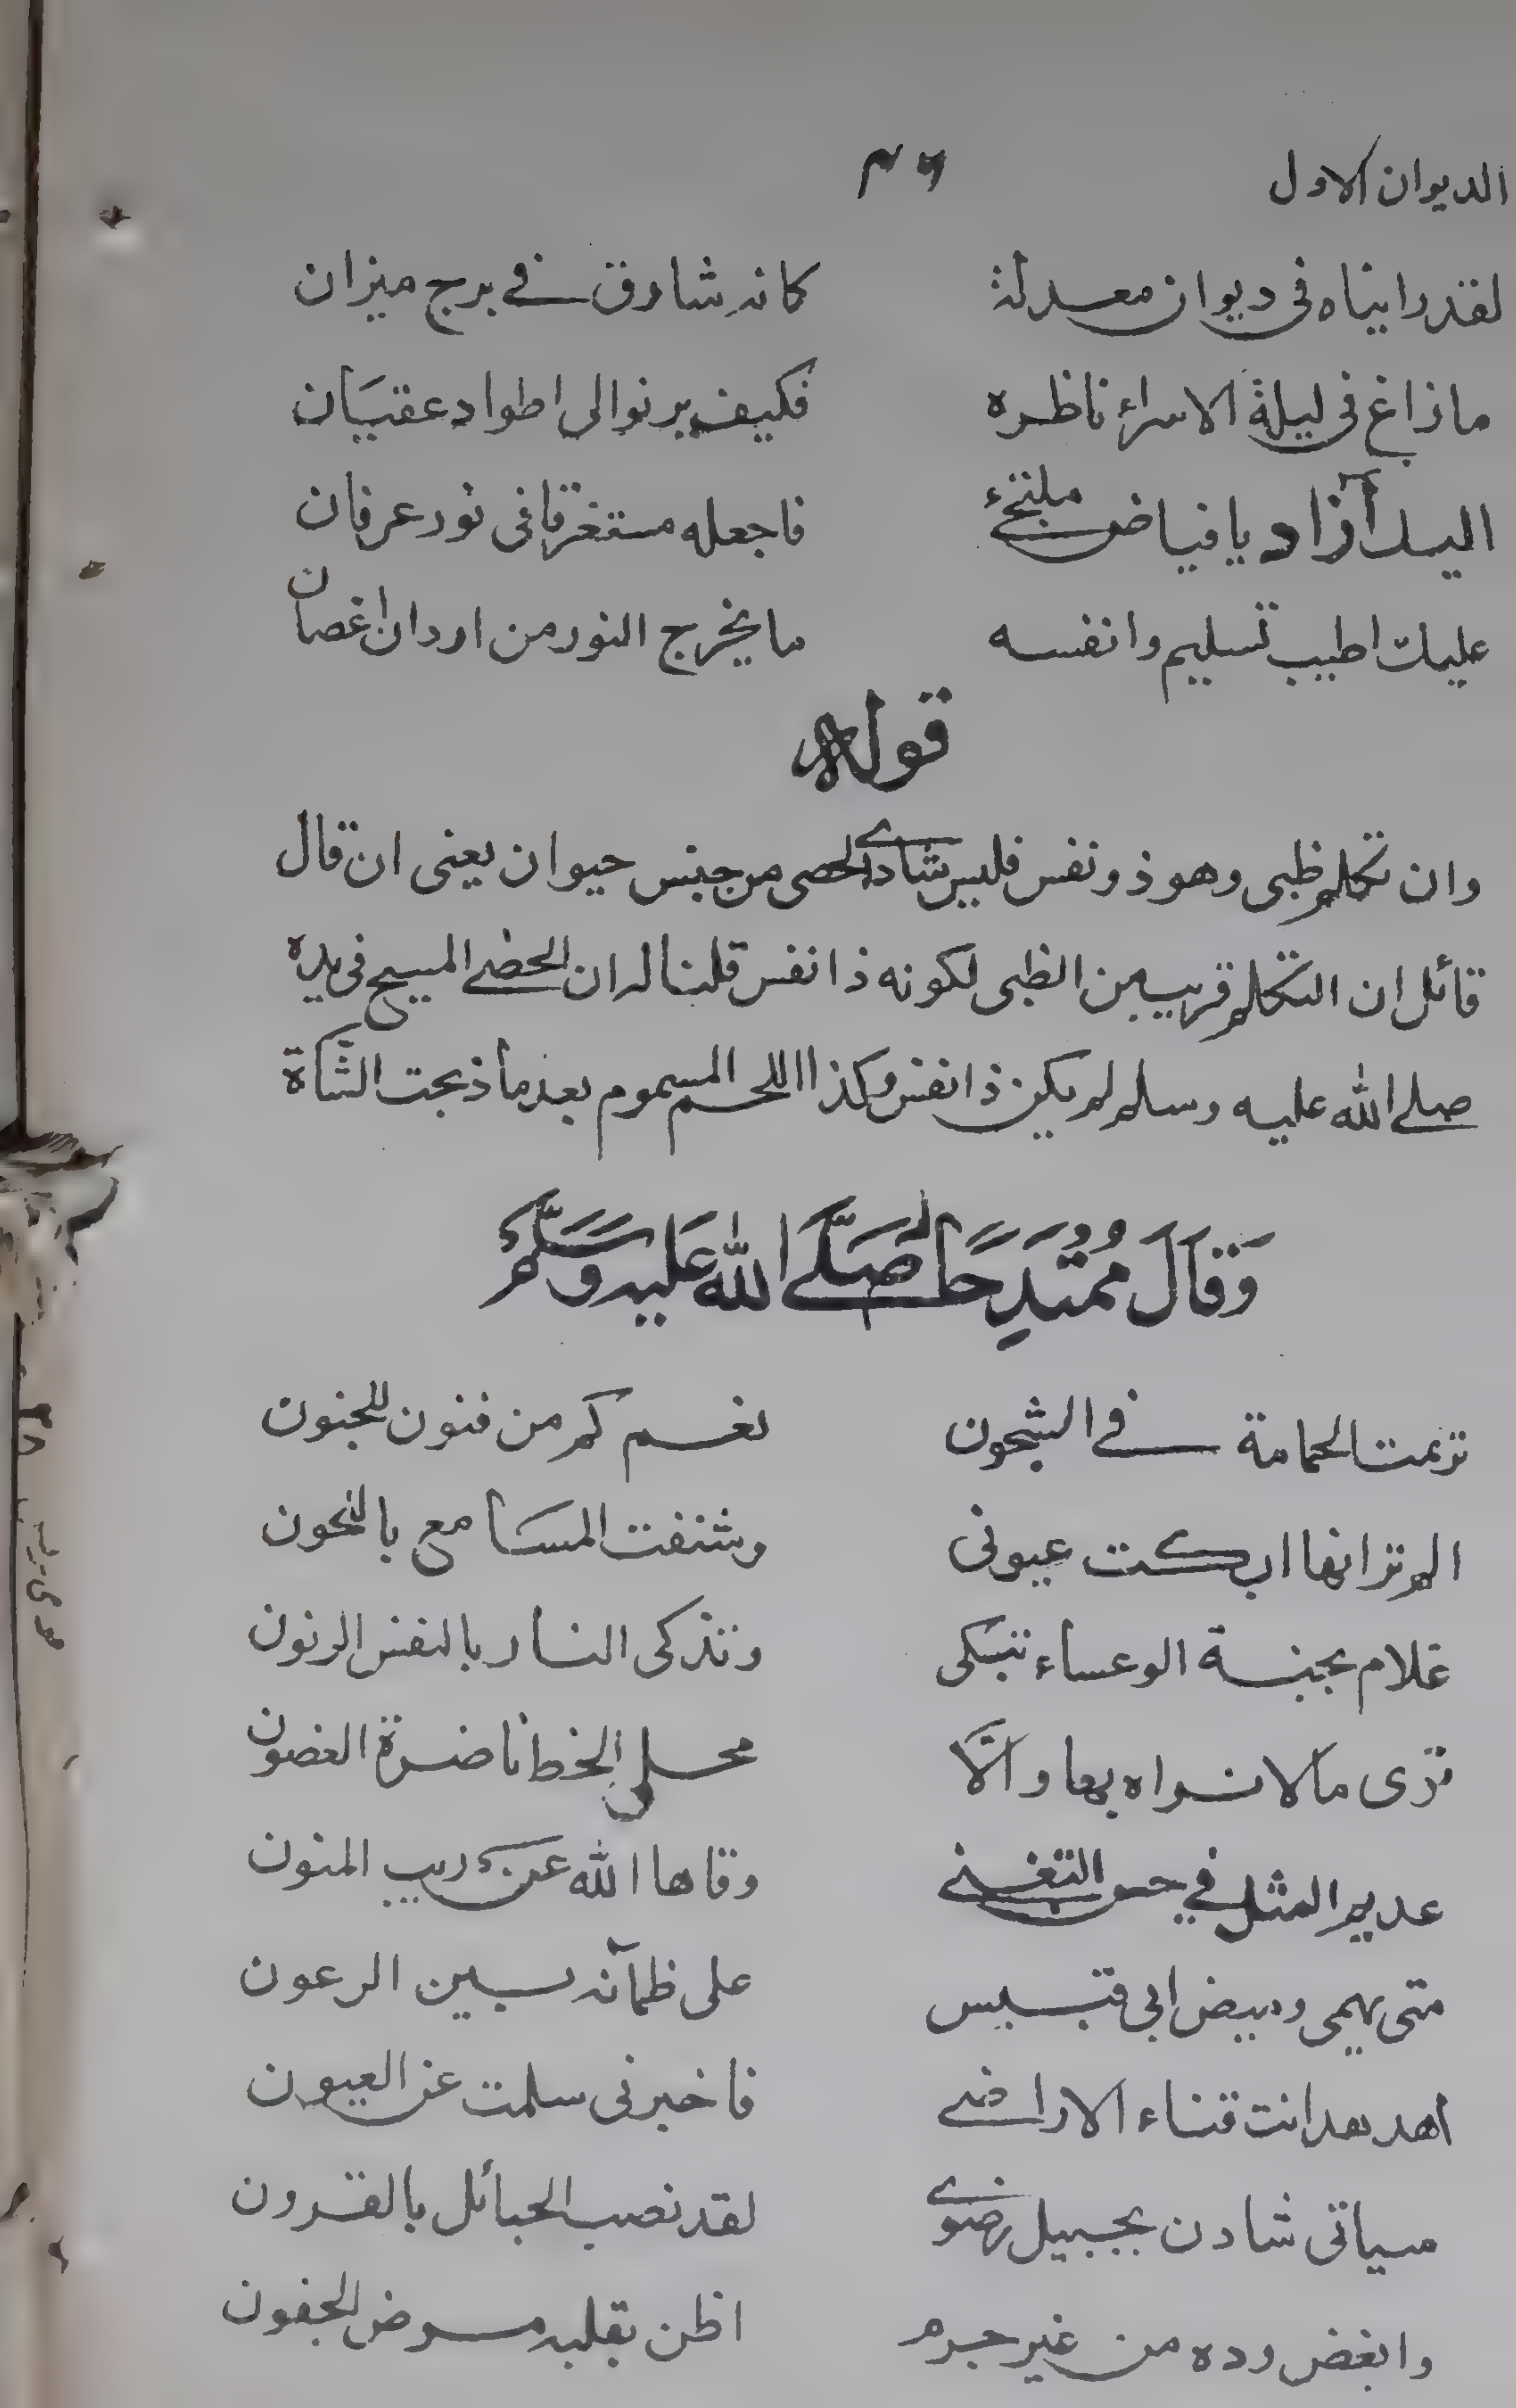 الديوان الاول ٤٦
لقد رايناه فى ديوان معدلة كانه شارق فے برج ميزان
ما زاغ فى ليلة الاسراء ناظره فكيف يرنوا لى اطواد عقيان
اليك آزاد يا فياض ملتجئ فاجعله مستغرقا فى نور عرفان
عليك اطيب تسليم وانفسه ما يخرج النور من اردان اغصان
قوله
وان تكلم ظبى وهو ذو نفس فليس شادى الحصى من جنس حيوان يعنى ان قال
قائل ان التكلم قريب من الظبى لكونه ذا نفس قلنا له ان الحصے المسبح فى يده
صلے الله عليه وسلم لم يكن ذا نفس وكذا اللحم المسموم بعد ما ذبحت الشاة
وَقَالَ مُمْتَدِحًا لَه صَلَّے اللّٰه عَليه وَسَلَّمَ
ترنمت الحمامة فے الشجون نغم كم من فنون للجنون
الم تر انها ابكت عيونى وشنفت المسَامع باللحون
علام بجنبة الوعساء تبكى وتذكى النار بالنفس الرنون
ترى ما لا نراه بها وانَّا محلى الخط ناضرة الغصون
عديم المثل فے حسن التغنے وقاها الله عن ريب المنون
متى يهمى وميض ابى قبيس على ظمآنه بين الرعون
اهدهد انت قناء الاراضے فاخبرنى سلمت عن العيون
سياتى شادن بجبيل رضوى لقد نصب الحبائل بالقرون
وابغض وده من غير جرم اظن بقلبه مرض الجفون